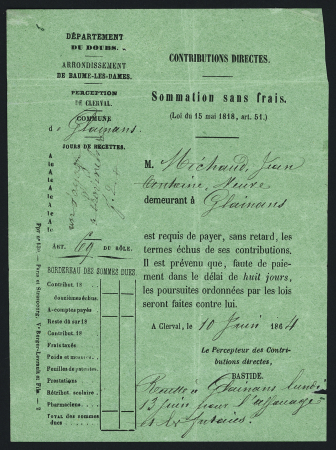 DÉPARTEMENT
DU DOUBS.
ARRONDISSEMENT
DE BAUME-LES-DAMES.
PERCEPTION
DE CLERVAL.
COMMUNE
de Glainans
JOURS DE RECETTES.
A
A
A
A
A
ART. 69 DU RÔLE.
BORDEREAU DES SOMMES DUES.
Contribut. 18
douzièmes échus
A-comptes payés
Reste dû sur 18
Contribut. 18
Frais taxés
Poids et mesures
Feuilles de patentes
Prestations
Rétribut. scolaire
Pharmaciens
TOTAL des sommes
dues
CONTRIBUTIONS DIRECTES.
Sommation sans frais.
(Loi du 15 mai 1818, art. 51.)
M. Michaud, Jean
Antoine,
demeurant à Glainans
est requis de payer, sans retard, les
termes échus de ses contributions.
Il est prévenu que, faute de paie-
ment dans le délai de huit jours,
les poursuites ordonnées par les lois
seront faites contre lui.
A Clerval, le 10 Juin 1864
Le Percepteur des Contri-
butions directes,
BASTIDE.
Recette à Glainans lundi
13 Juin pour l'affouage
et les futaies